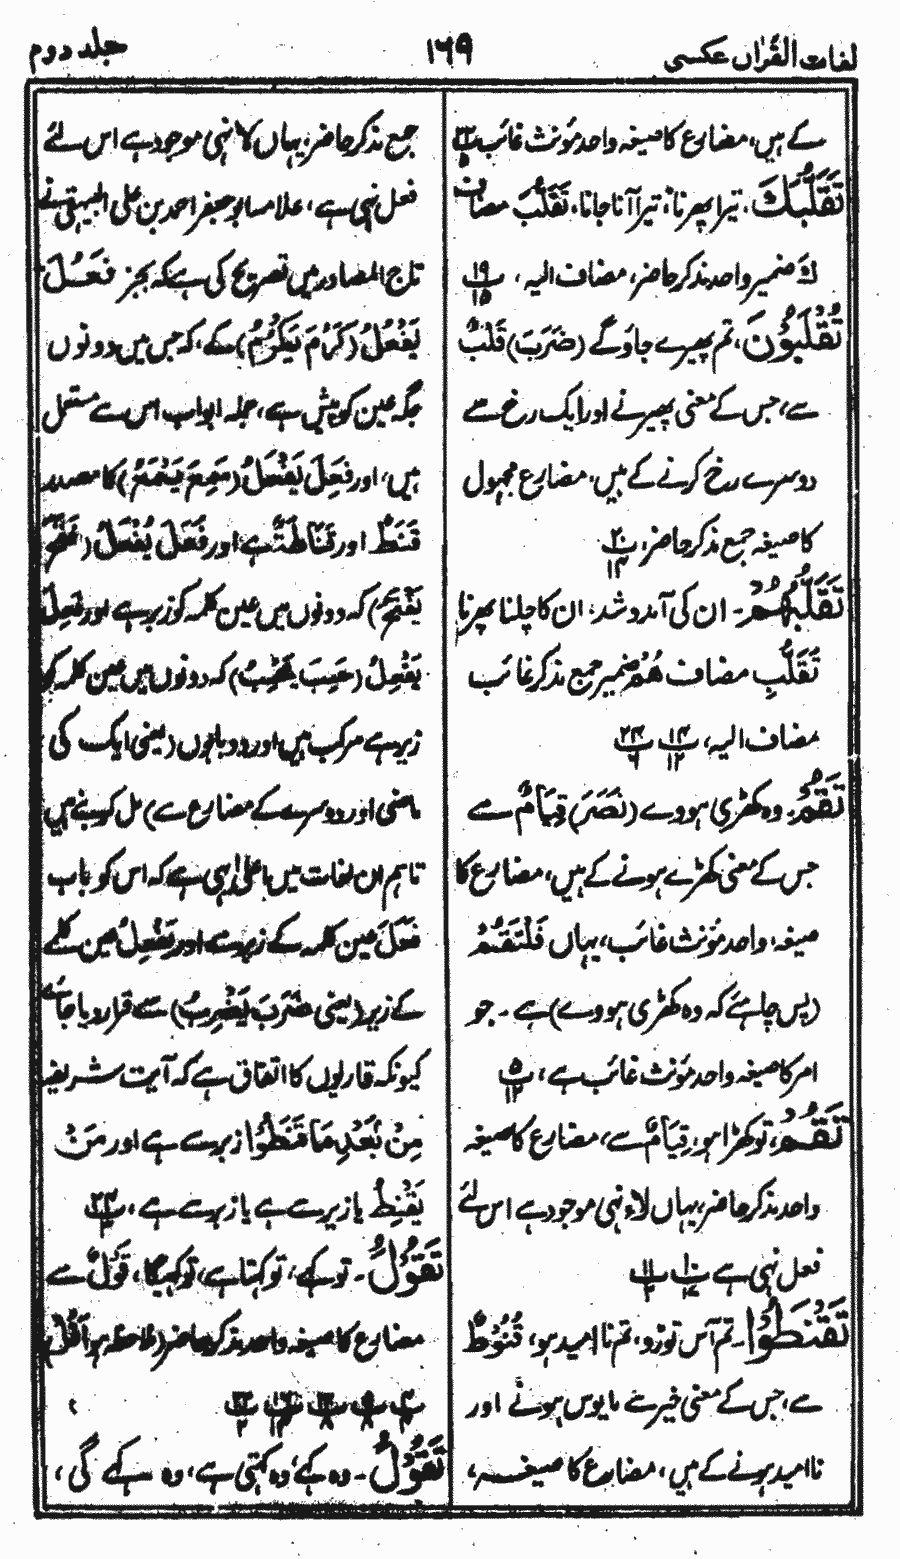 لغات القرآن عکسی
۱۶۹
جلد دوم
کے ہیں، مضارع کا صیغہ واحد مؤنث غائب
تَقَلُّبَكَ۔ تیرا پھرنا، تیرا آنا جانا، تَقَلُّبَ مضاف
كَ ضمیر واحد مذکر حاضر، مضاف الیہ ، پ۱۹ ۱۵
تُقْلَبُوْنَ، تم پھیرے جاؤگے (ضَرَبَ) قَلْبٌ
سے، جس کے معنی پھیرنے اور ایک رخ سے
دوسرے رخ کرنے کے ہیں، مضارع مجہول
کا صیغہ جمع مذکر حاضر، پ۲۰ ۱۴
تَقَلُّبُهُمْ۔ ان کی آمد و شد، ان کا چلنا پھرنا
تَقَلُّبِ مضاف هُمْ ضمیر جمع مذکر غائب
مضاف الیہ، پ۱۴ ۱۲ پ۲۴ ۶
تَقُمْ۔ وہ کھڑی ہووے (نَصَرَ) قِيَامٌ سے
جس کے معنی کھڑے ہونے کے ہیں، مضارع کا
صیغہ، واحد مؤنث غائب، یہاں فَلْتَقُمْ
(پس چاہئے کہ وہ کھڑی ہووے) ہے۔ جو
امر کا صیغہ واحد مؤنث غائب ہے، پ۵ ۱۲
تَقُمْ، تو کھڑا ہو، قِيَامٌ سے، مضارع کا صیغہ
واحد مذکر حاضر، یہاں لاء نہی موجود ہے اس لئے
فعل نہی ہے پ۱۰ ۱۷ پ۱۱ ۲
تَقْنَطُوْا۔ تم آس توڑو، تم نا امید ہو، قُنُوْطٌ
سے، جس کے معنی خیر سے مایوس ہونے اور
نا امید ہونے کے ہیں، مضارع کا صیغہ،
جمع مذکر حاضر، یہاں لاءِ نہی موجود ہے اس لئے
فعل نہی ہے، علامہ ابو جعفر احمد بن علی البیہقی نے
تاج المصادر میں تصریح کی ہے کہ بجز فَعُلَ
يَفْعُلُ (كَرُمَ يَكْرُمُ) کے، کہ جس میں دونوں
جگہ عین کو پیش ہے، جملہ ابواب اس سے مستعمل
ہیں، اور فَعِلَ يَفْعَلُ (سَمِعَ يَسْمَعُ) کا مصدر
قَنَطٌ اور قَنَاطَةٌ ہے اور فَعَلَ يَفْعَلُ (فَتَحَ
يَفْتَحُ) کہ دونوں میں عین کلمہ کو زبر ہے اور فَعِلَ
يَفْعِلُ (حَسِبَ يَحْسِبُ) کہ دونوں میں عین کلمہ کو
زیر ہے مرکب ہیں اور دو بابوں (یعنی ایک کی
ماضی اور دوسرے کے مضارع سے) مل کر بنے ہیں
تاہم ان لغات میں اعلیٰ یہی ہے کہ اس کو باب
فَعَلَ عین کلمہ کے زبر سے اور يَفْعِلُ عین کلمے
کے زیر (یعنی ضَرَبَ يَضْرِبُ) سے قرار دیا جائے
کیونکہ قاریوں کا اتفاق ہے کہ آیت شریفہ
مِنْ بَعْدِ مَا قَنَطُوْا زبر سے ہے اور مَنْ
يَقْنِطُ یا زیر سے ہے یا زبر سے ہے، پ۲۴ ۳
تَقُوْلُ۔ تو کہے، تو کہتا ہے، تو کہیگا، قَوْلٌ سے
مضارع کا صیغہ واحد مذکر حاضر (ملاحظہ ہو أَقُلْ)
تَقُوْلُ۔ وہ کہے، وہ کہتی ہے، وہ کہے گی ،